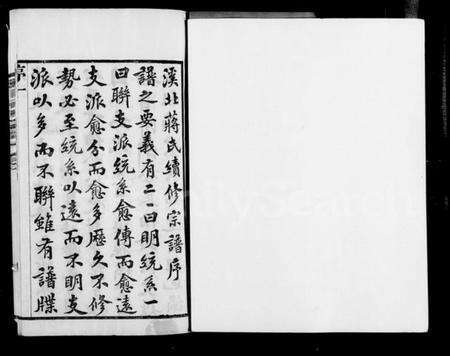 溪北蔣氏續修宗譜序
譜之要義有二一曰明統系一
曰聯支派統系愈傳而愈遠
支派愈分而愈多歷久不修
勢必至統系以遠而不明支
派以多而不聯雖有譜牒
序一
FamilySearch